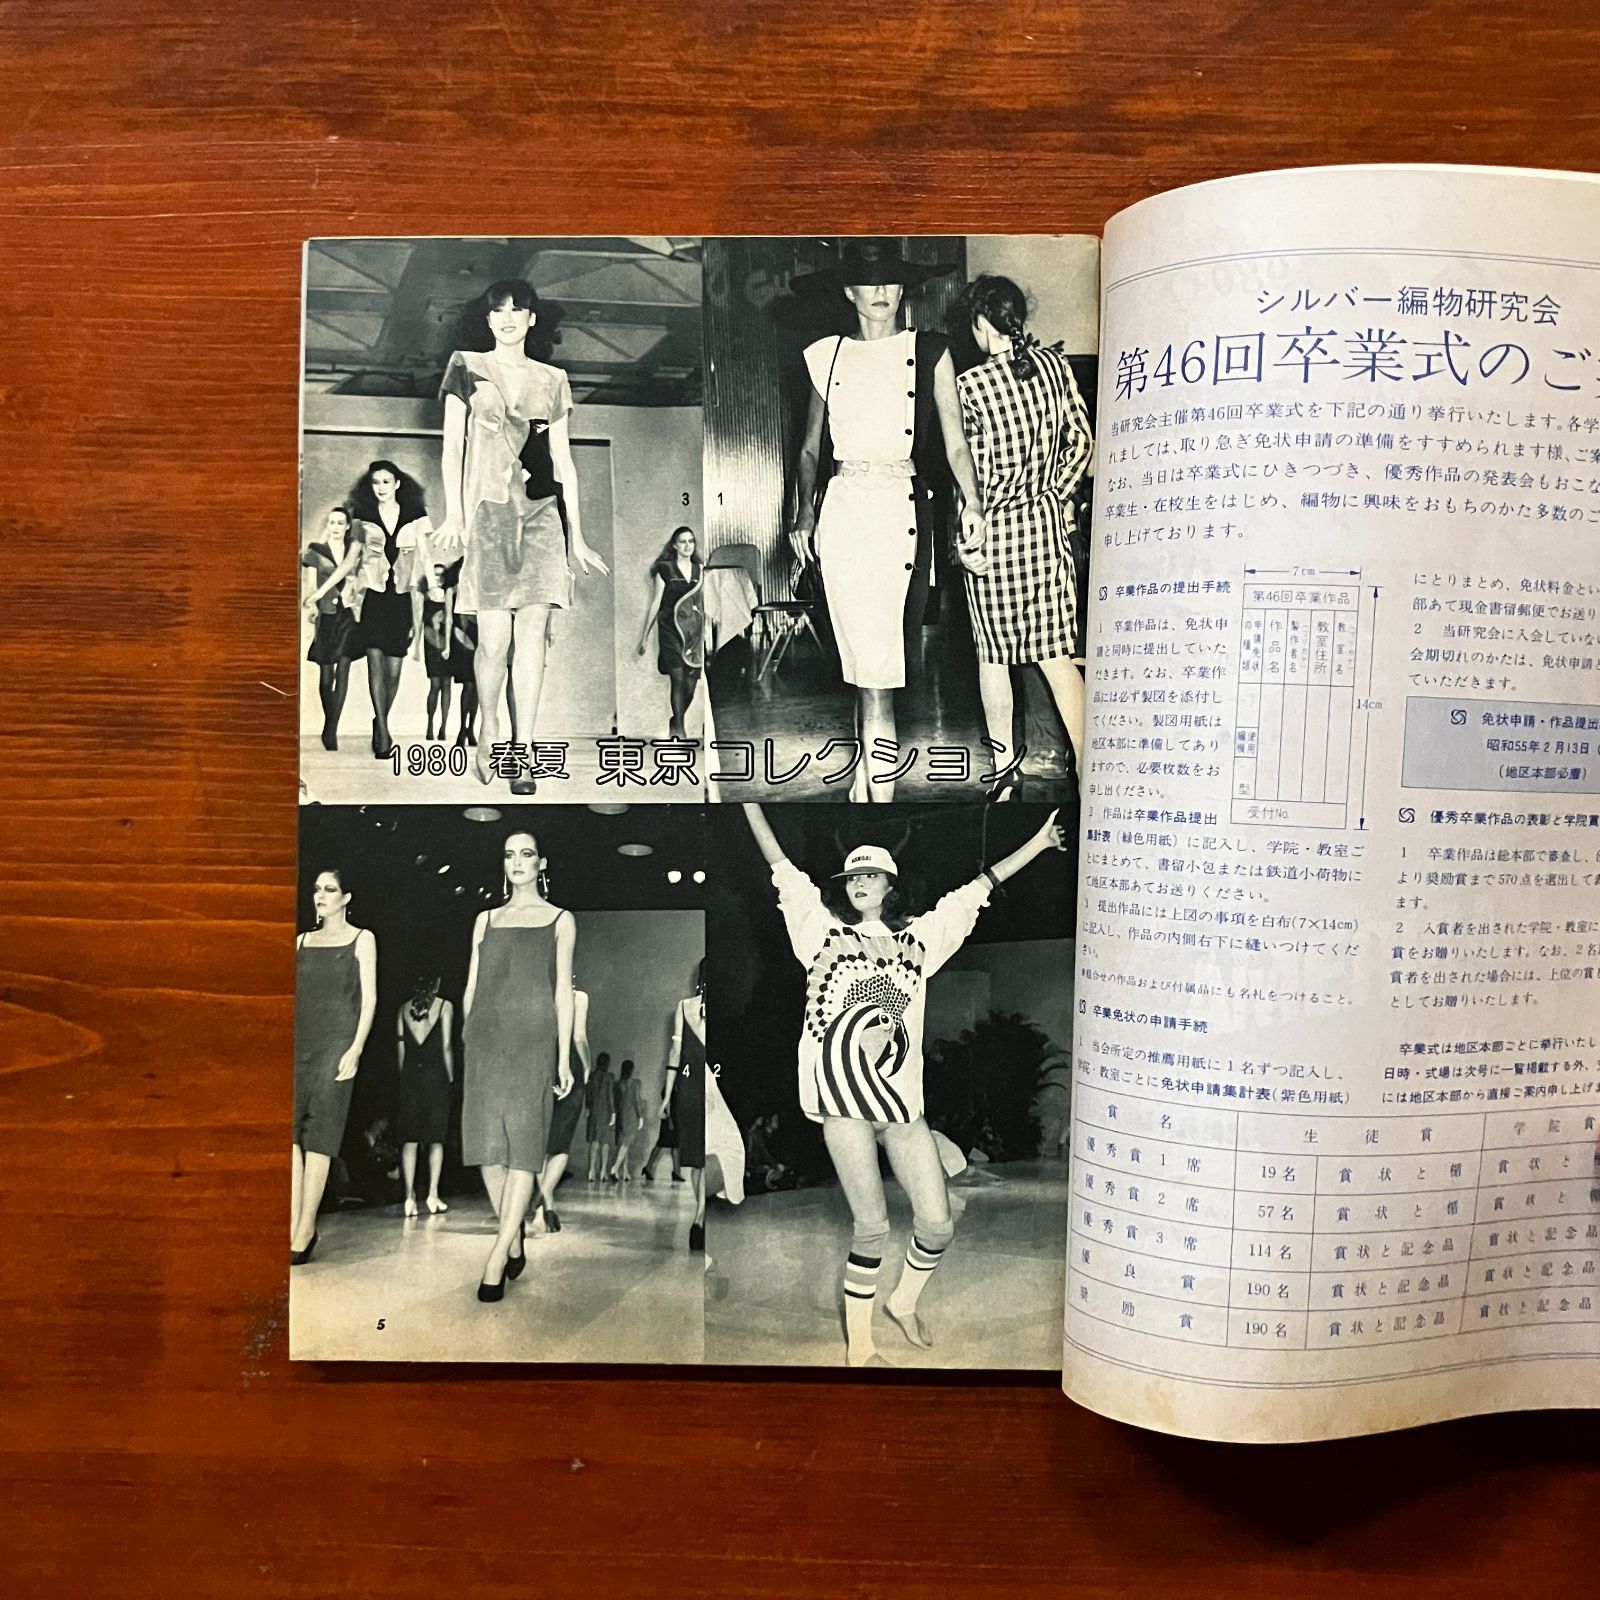 3 1
1980 春夏 東京コレクション
KANSAI
4 2
5
シルバー編物研究会
第46回卒業式のご
当研究会主催第46回卒業式を下記の通り挙行いたします。各学
れましては、取り急ぎ免状申請の準備をすすめられます様、ご案
なお、当日は卒業式にひきつづき、優秀作品の発表会もおこな
卒業生・在校生をはじめ、編物に興味をおもちのかた多数のご
申し上げております。
卒業作品の提出手続
1 卒業作品は、免状申
請と同時に提出していた
だきます。なお、卒業作
品には必ず製図を添付し
てください。製図用紙は
地区本部に準備してあり
ますので、必要枚数をお
申し出ください。
2 作品は卒業作品提出
集計表(緑色用紙)に記入し、学院・教室ご
とにまとめて、書留小包または鉄道小荷物に
て地区本部あてお送りください。
3 提出作品には上図の事項を白布(7×14cm)
に記入し、作品の内側右下に縫いつけてくだ
さい。
組合せの作品および付属品にも名札をつけること。
卒業免状の申請手続
1 当会所定の推薦用紙に1名ずつ記入し、
学院・教室ごとに免状申請集計表(紫色用紙)
7cm
第46回卒業作品
申請免状の種類
作品名
製作者名
教室住所
教室名
使用編機
型
受付No.
14cm
にとりまとめ、免状料金とい
部あて現金書留郵便でお送り
2 当研究会に入会していな
会期切れのかたは、免状申請と
ていただきます。
免状申請・作品提出
昭和55年2月13日(
(地区本部必着)
優秀卒業作品の表彰と学院賞
1 卒業作品は総本部で審査し、
より奨励賞まで570点を選出して
ます。
2 入賞者を出された学院・教室に
賞をお贈りいたします。なお、2名
賞者を出された場合には、上位の賞
としてお贈りいたします。
卒業式は地区本部ごとに挙行いたし
日時・式場は次号に一覧掲載する外、
には地区本部から直接ご案内申し上げ
賞名 生徒賞 学院賞
優秀賞1席 19名 賞状と楯 賞状と
優秀賞2席 57名 賞状と楯 賞状と楯
優秀賞3席 114名 賞状と記念品 賞状と記念品
優良賞 190名 賞状と記念品 賞状と記念品
奨励賞 190名 賞状と記念品 賞状と記念品